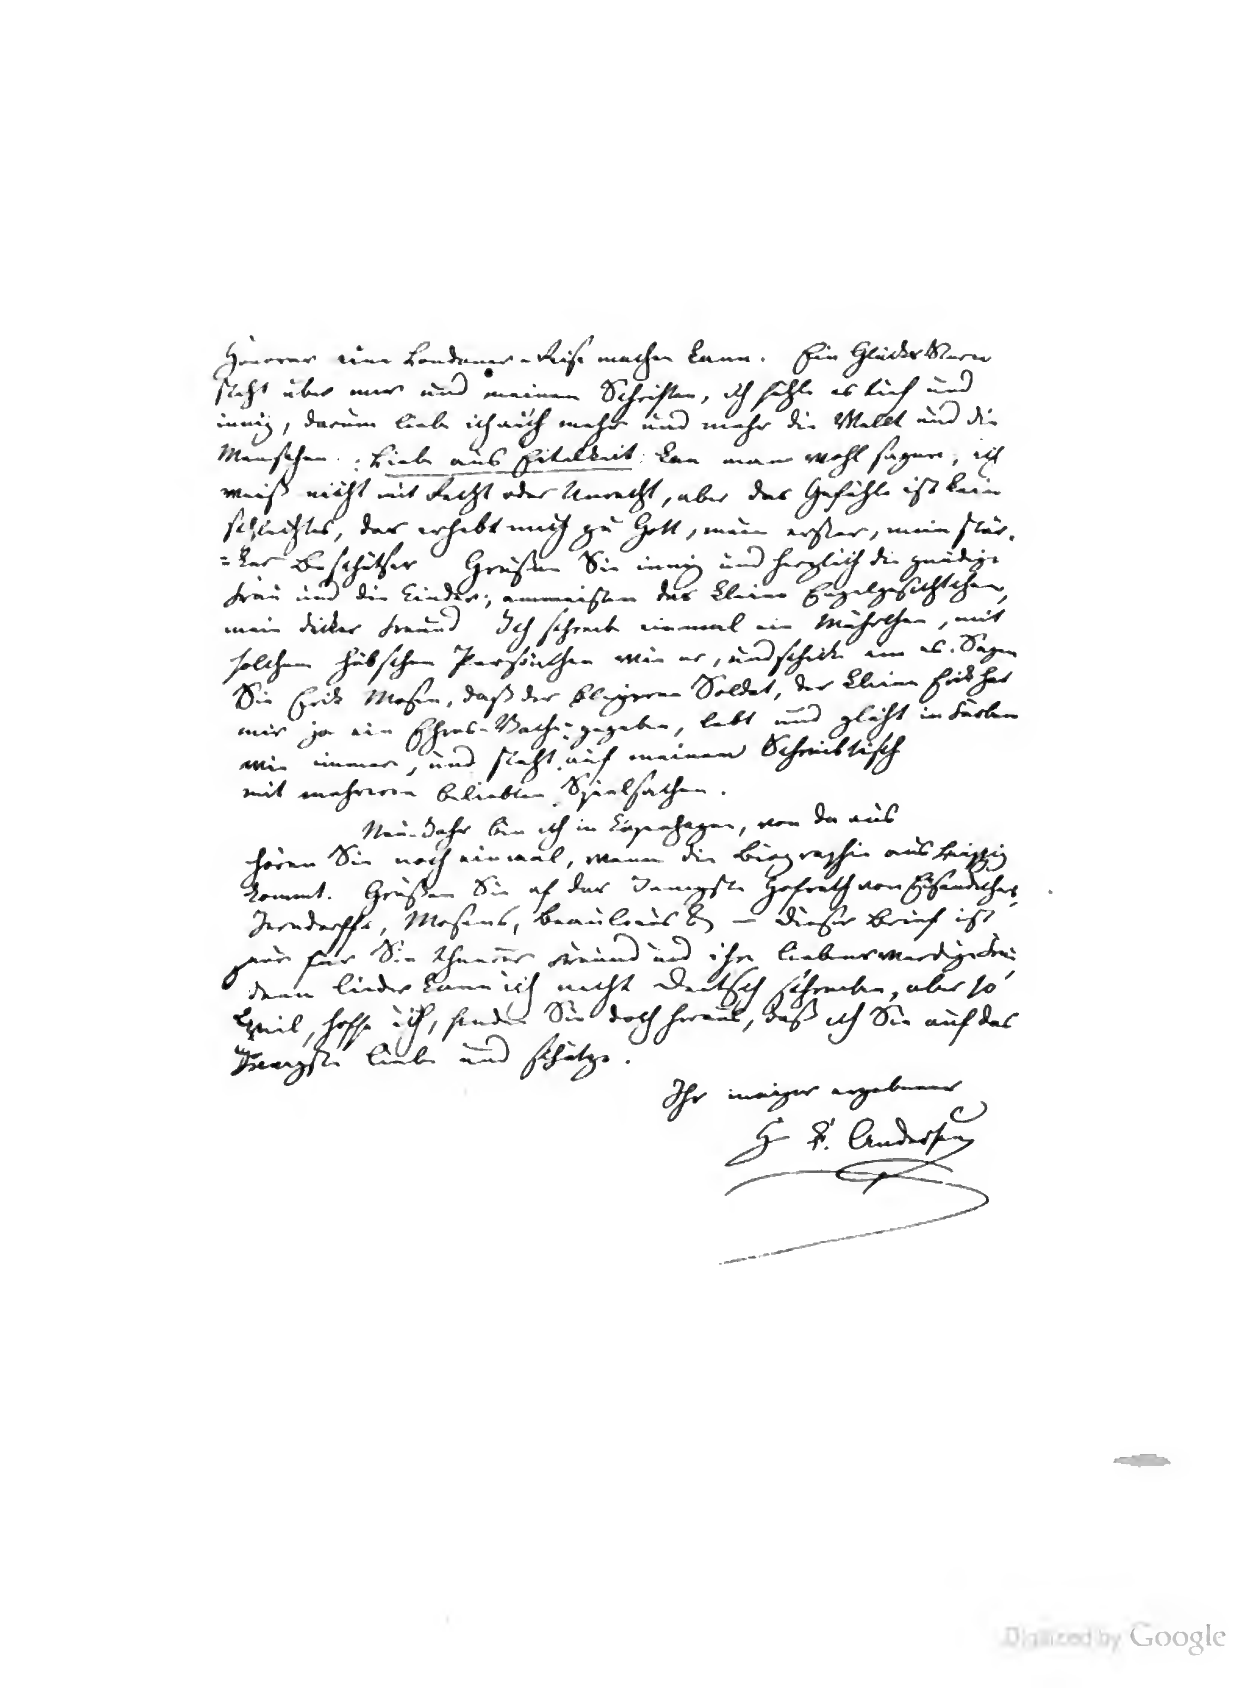 Honorar eine Londoner-Reise machen kann. Ein Glücks Stern
steht über mir und meinen Schriften, ich fühle es tief und
innig, darum liebe ich auch mehr und mehr die Welt und die
Menschen. Liebe aus Eitelkeit kan man wohl sagen, ich
weiß nicht mit Recht oder Unrecht, aber das Gefühl ist kein
schlechtes, das erhebt mich zu Gott, mein erster, mein stär-
=ker Beschützer Grüßen Sie innig und herzlich die gnädige
Frau und die Kinder, ammeisten das kleine Engelgesichtchen,
mein dicker Freund Ich schreibe einmal ein Mährchen, mit
solchem hübschen Persönchen wie er, und schicke em es. Sagen
Sie Erik Mosen, daß der bleyerne Soldat, der kleine Erik hat
mir ja ein gegeben, lebt und glüht in Farben
wie immer, und steht auf meinem Schreibtisch
mit mehreren beliebten Spielsachen.
Neu-Jahr bin ich in Copenhagen, von da aus
hören Sie noch einmal, wenn die Biographie aus Leipzig
kommt. Grüßen Sie af das Innigste Hofrath von Eisendecher,
Jerndorffs, Mosens, Beaulieus & — dieser Brief ist
nur für Sie theurer Freund und ihre liebenswerdige Frau
denn leider kann ich nicht Deutsch schreiben, aber so
viel, hoffe ich, finden Sie doch heraus, daß ich Sie auf das
Innigste liebe und schätze.
Ihr inniger ergebener
H. C. Andersen
Digitized by Google